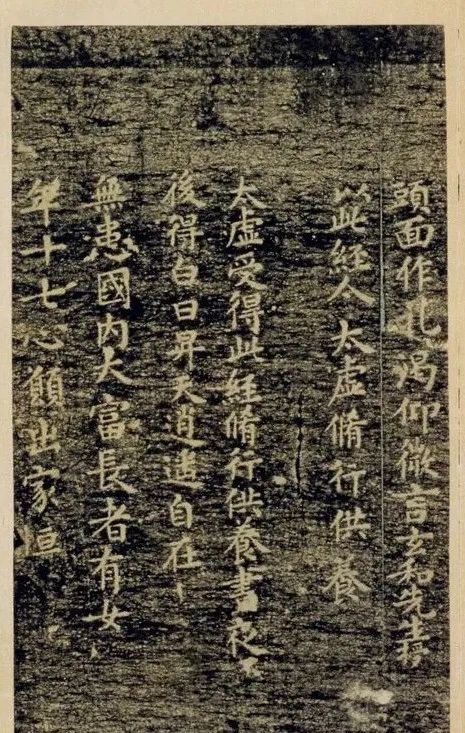 頭面作礼渴仰微言玄和先生授
此經令太虛脩行供養
太虛受得此經脩行供養晝夜不
後得白日昇天逍遥自在
無恚國內大富長者有女
年十七心願出家恒